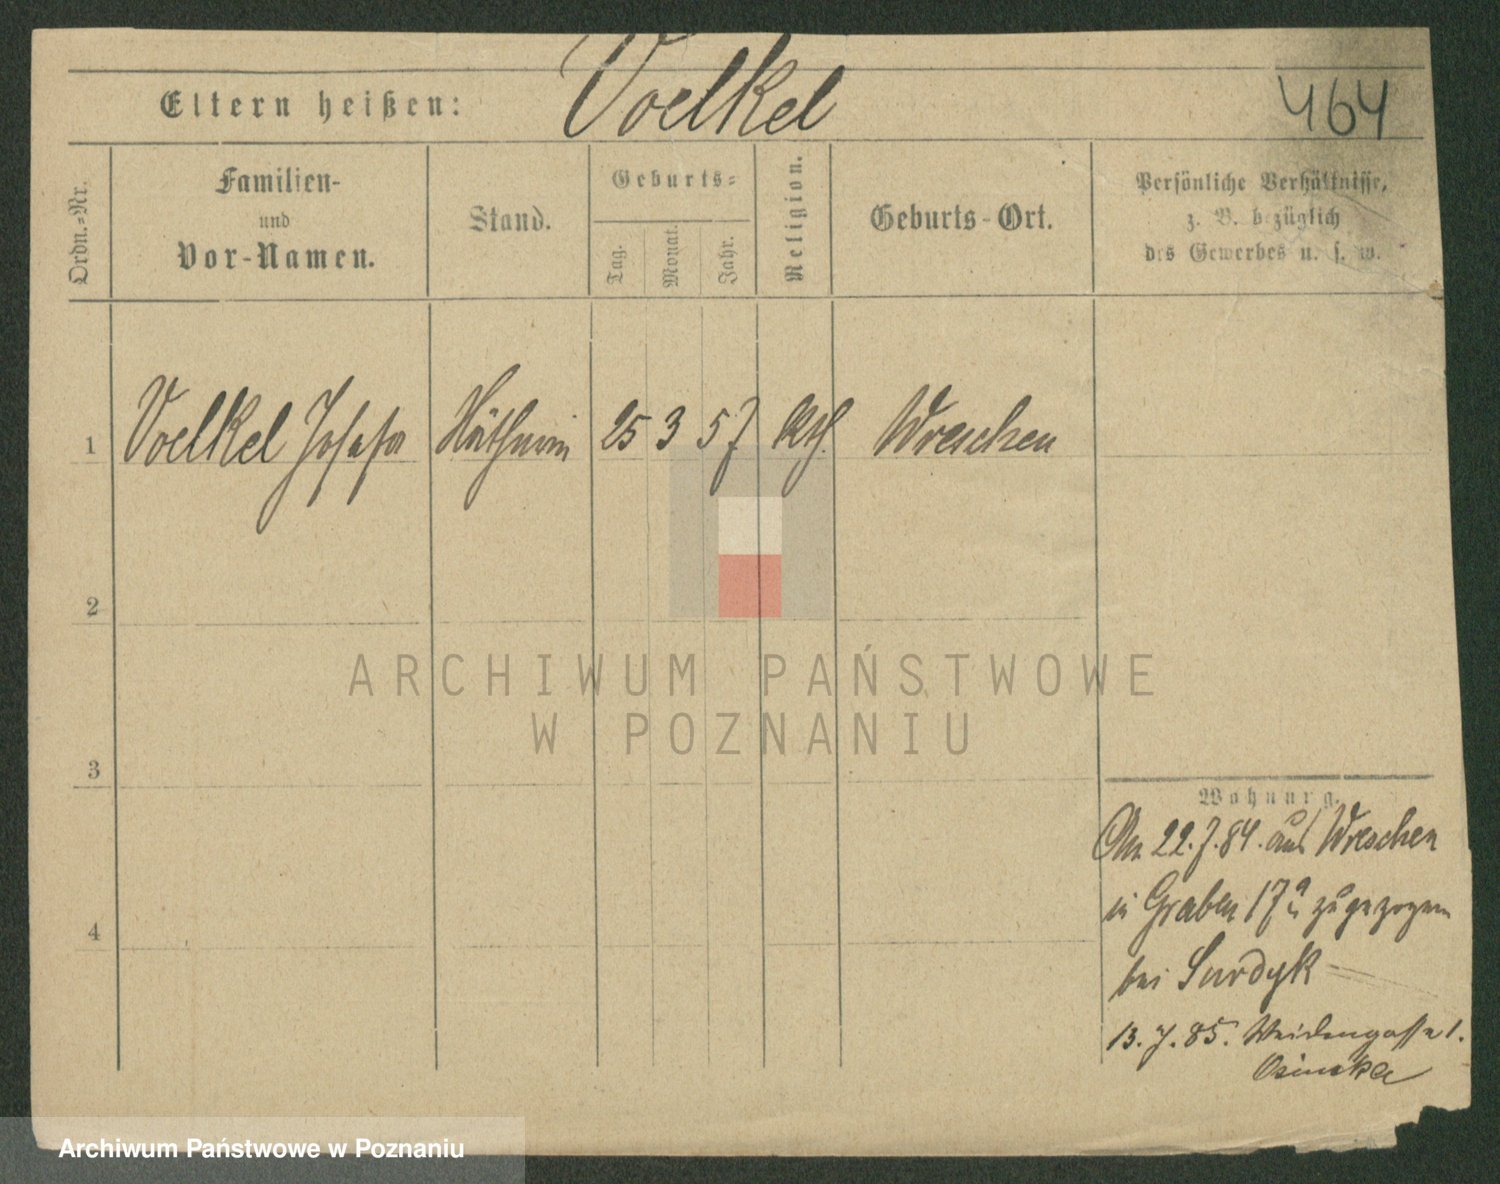 Voelkel
464
Eltern heißen:
Ordn.-Nr.
Familien-
und
Vor-Namen.
Stand.
Geburts-
Tag.
Monat.
Jahr.
Religion.
Geburts-Ort.
Persönliche Verhältnisse,
z. B. bezüglich
des Gewerbes u. s. w.
1 Voelkel Josefa 25 3 57 kth. Wreschen
2
3
4
Wohnung.
Am 22.7.84. aus Wreschen
in Graben 17a zugezogen
bei Surdyk
13.7.85. Weidengasse 1.
Osinska
ARCHIWUM PAŃSTWOWE
W POZNANIU
Archiwum Państwowe w Poznaniu